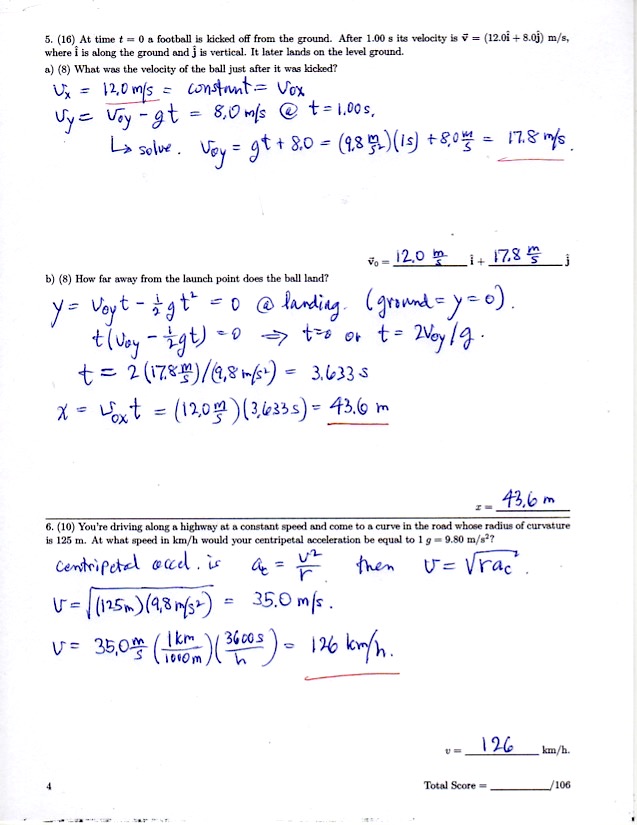 5. (16) At time t = 0 a football is kicked off from the ground. After 1.00 s its velocity is v⃗ = (12.0î + 8.0ĵ) m/s,
where î is along the ground and ĵ is vertical. It later lands on the level ground.
a) (8) What was the velocity of the ball just after it was kicked?
Vx = 12,0 m/s = constant = Vox
Vy = Voy - gt = 8,0 m/s @ t = 1.00 s,
↳ solve. Voy = gt + 8.0 = (9,8 m/s²)(1s) + 8,0 m/s = 17.8 m/s.
v⃗₀ = 12.0 m/s î + 17.8 m/s ĵ
b) (8) How far away from the launch point does the ball land?
y = Voyt - ½gt² = 0 @ landing. (ground = y = 0).
t(Voy - ½gt) = 0 ⇒ t=0 or t = 2Voy/g.
t = 2(17.8 m/s)/(9,8 m/s²) = 3.633 s
x = Voxt = (12,0 m/s)(3,633 s) = 43.6 m
x = 43,6 m
6. (10) You're driving along a highway at a constant speed and come to a curve in the road whose radius of curvature
is 125 m. At what speed in km/h would your centripetal acceleration be equal to 1 g = 9.80 m/s²?
Centripetal accel. is ac = v²/r then v = √rac.
v = √(125m)(9,8 m/s²) = 35.0 m/s.
v = 35,0 m/s (1km/1000m)(3600s/h) = 126 km/h.
v = 126 km/h.
4 Total Score = /106